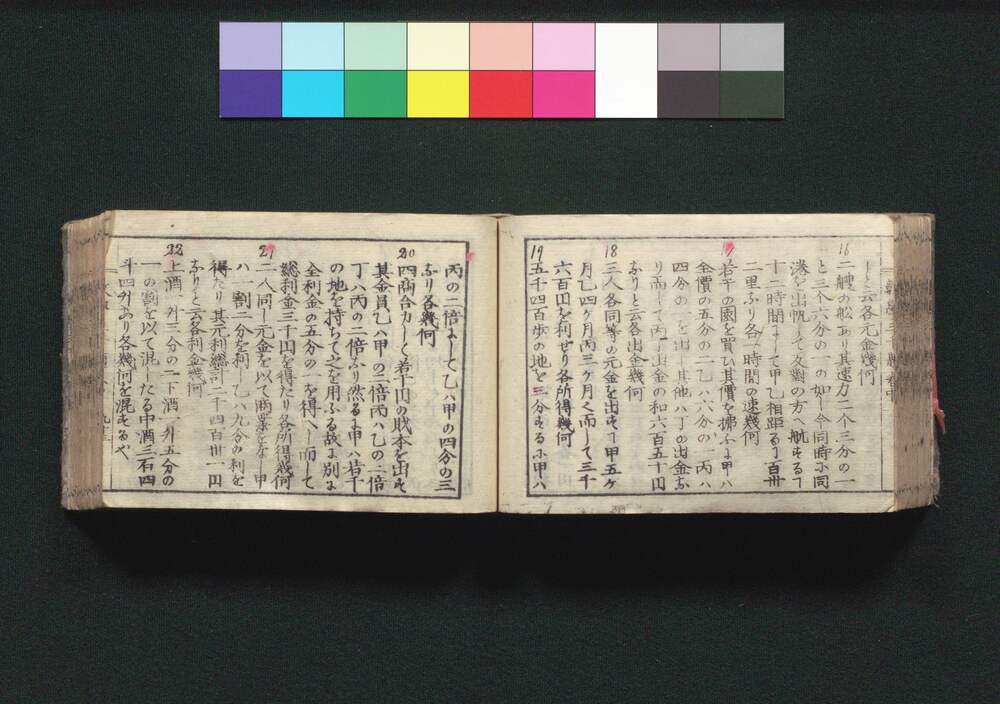 ーと云各元金幾何
16
二艘の船あり其速力二个三分の一
と三个六分の一の如し今同時ニ同
港を出帆して反對の方へ航するて
十二時間ニして甲乙相距るヿ百卅
二里ふり各一時間の速幾何
17
若干の園を買ひ其價を拂ふニ甲ハ
全價の五分の二乙ハ六分の一丙ハ
四分の一を出し其他ハ丁の出金ふ
り而して丙丁出金の和六百五十円
ふりと云各出金幾何
18
三人各同等の元金を出して甲五ヶ
月乙四ヶ月丙三ヶ月ニ而して三千
六百円を利せり各所得幾何
19
五千四百歩の地を三分するニ甲ハ
丙の二倍ニして乙ハ甲の四分の三
ふり各幾何
20
四商合力しく若干円の財本を出す
其金員乙ハ甲の二倍丙ハ乙の二倍
丁ハ丙の二倍ふり然るニ甲ハ若干
の地を持ちて之を用ふる故ニ別ニ
全利金の五分の一を得へし而して
総利金三千円を得たり各所得幾何
21
二人同し元金を以て商業をなし甲
ハ一割二分を利し乙ハ九分の利を
得たり其元利総計二千四百卅一円
ふりと云各利金幾何
22
上酒一升三分の二下酒一升五分の
一の割を以て混したる中酒三石四
斗四升あり各幾何を混するや